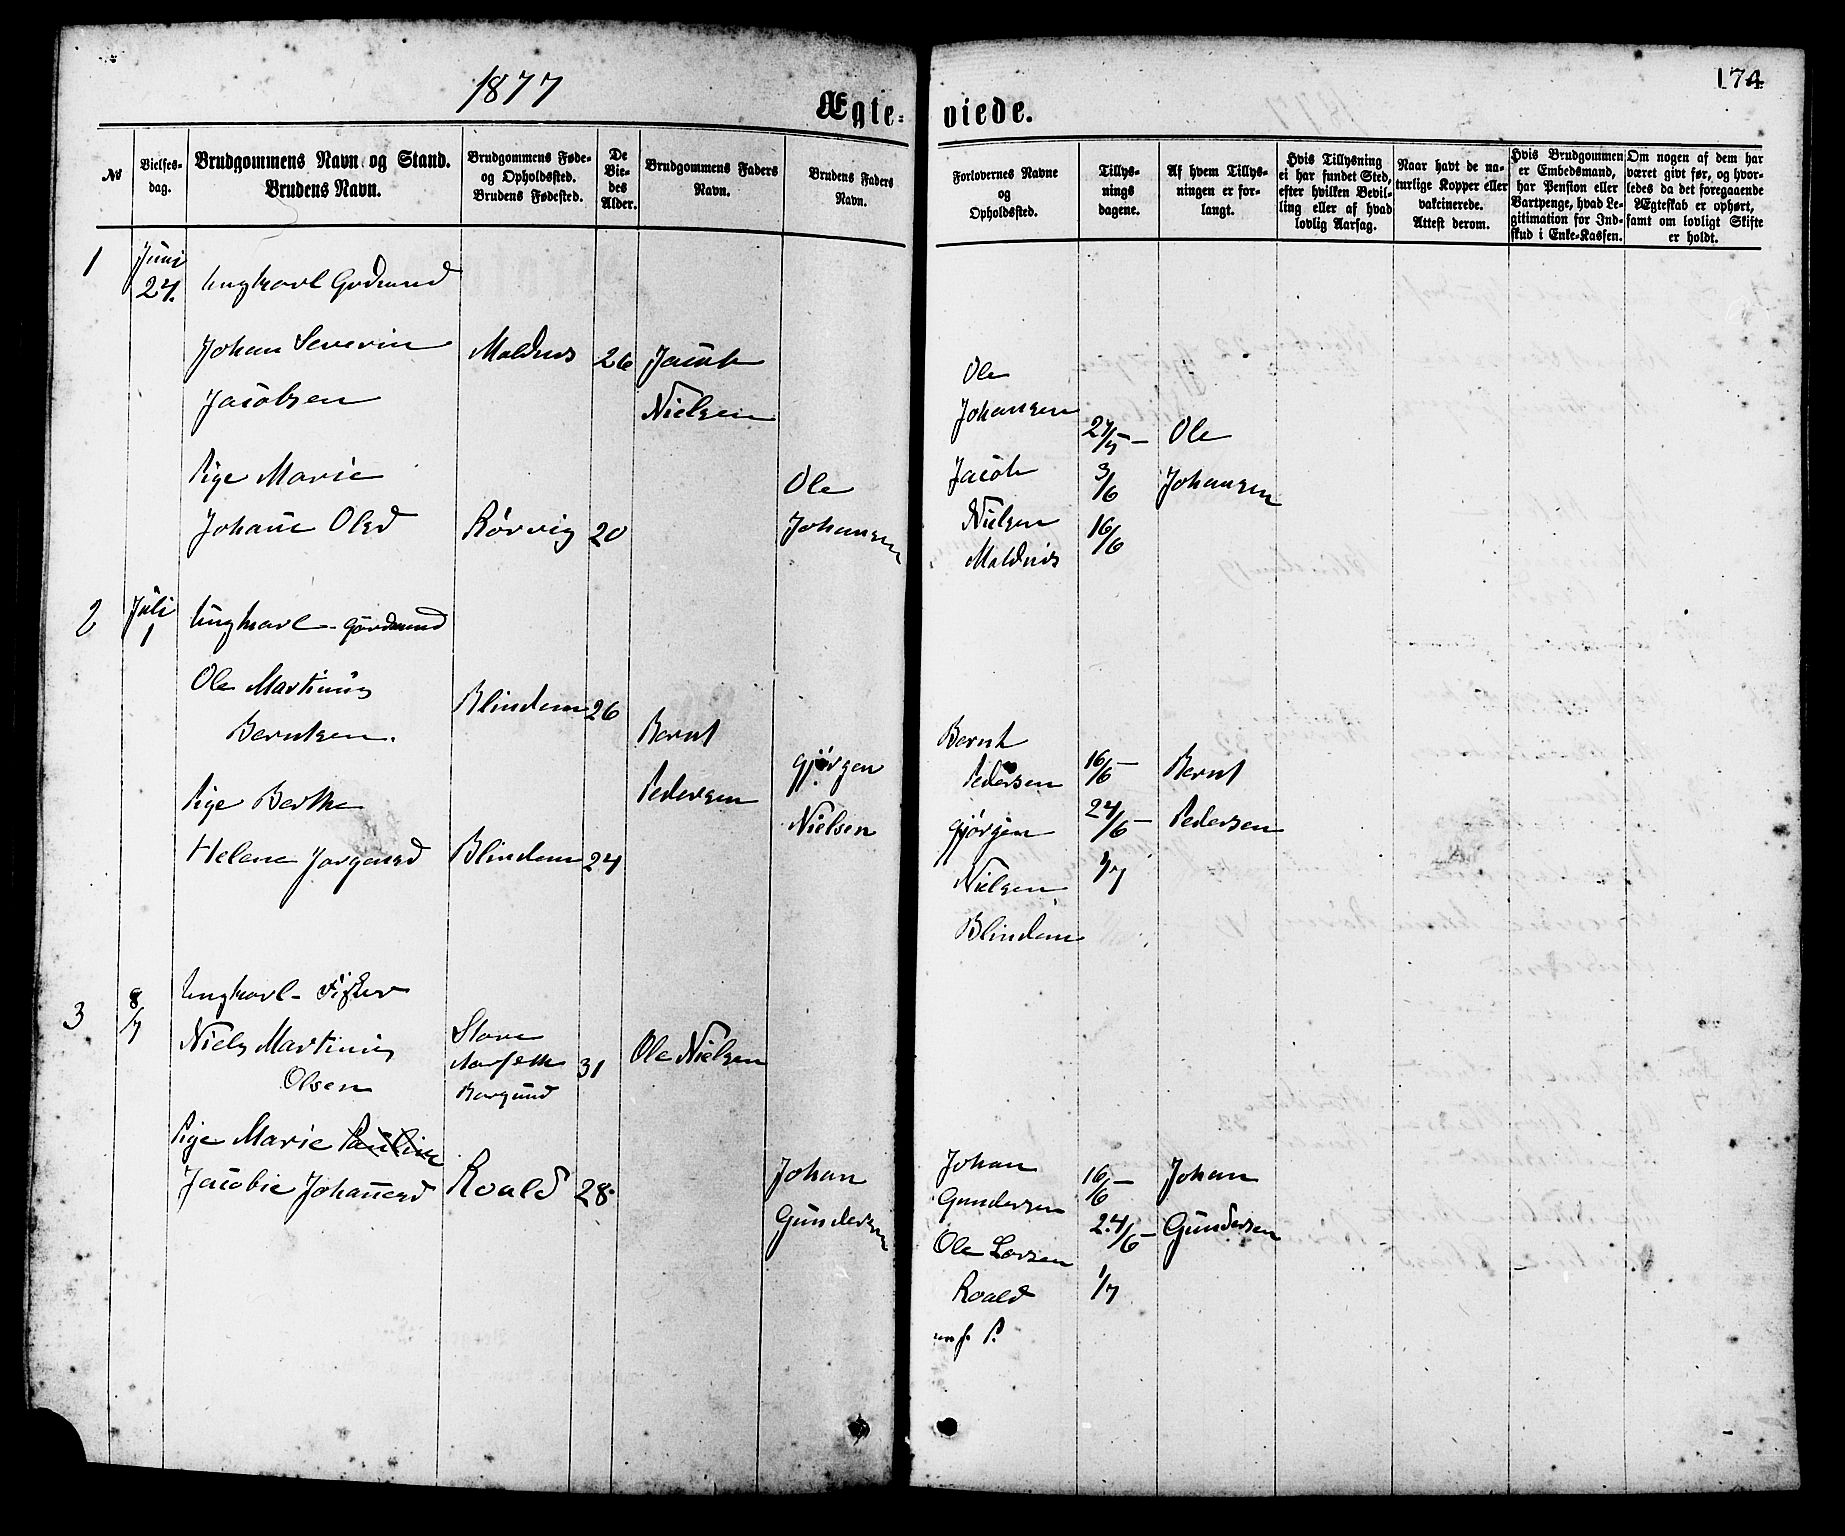 1877
174
Ægte-
viede.
No
Vielses-
dag.
Brudgommens Navn og Stand.
Brudens Navn.
Brudgommens Føde-
og Opholdssted.
Brudens Fødested.
De
Vie-
des
Alder.
Brudgommens Faders
Navn.
Brudens Faders
Navn.
Forlovernes Navne
og
Opholdssted.
Tillys-
nings
dagene.
Af hvem Tillys-
ningen er for-
langt.
Hvis Tillysning
ei har fundet Sted,
efter hvilken Bevil-
ling eller af hvad
lovlig Aarsag.
Naar havt de na-
turlige Kopper eller
vakcinerede.
Attest derom.
Hvis Brudgommen
er Embedsmand,
har Pension eller
Vartpenge, hvad Le-
gitimation for Ind-
skud i Enke-Kassen.
Om nogen af dem har
været givt før, og hvor-
ledes da det foregaaende
Ægteskab er ophørt,
samt om lovligt Skifte
er holdt.
1
Juni
24.
Ungkarl Gdmd
Johan Severin
Jacobsen
Moldnes
26
Jacob
Nielsen
Pige Marie
Johane Olsd
Rørvig
20
Ole
Johansen
Ole
Johansen
Jacob
Nielsen
Moldnes
27/5 -
3/6
16/6
Ole
Johansen
2
Juli
1
Ungkarl - Gdmd
Ole Martinus
Berntsen.
Blindem
26
Bernt
Pedersen
Pige Berthe
Helene Jørgensd
Blindem
24
Gjørgen
Nielsen
Bernt
Pedersen
Gjørgen
Nielsen
Blindem
16/6 -
24/6 -
1/7
Bernt
Pedersen
3
8/7
Ungkarl - Fisker
Niels Martinus
Olsen
Store
Aarseth
Borgund
31
Ole Nielsen
Pige Marie Pauline
Jacobie Johansd
Roald
28.
Johan
Gundersen
Johan
Gundersen
Ole Larsen
Roald
16/6 -
24/6 -
1/7
Johan
Gundersen